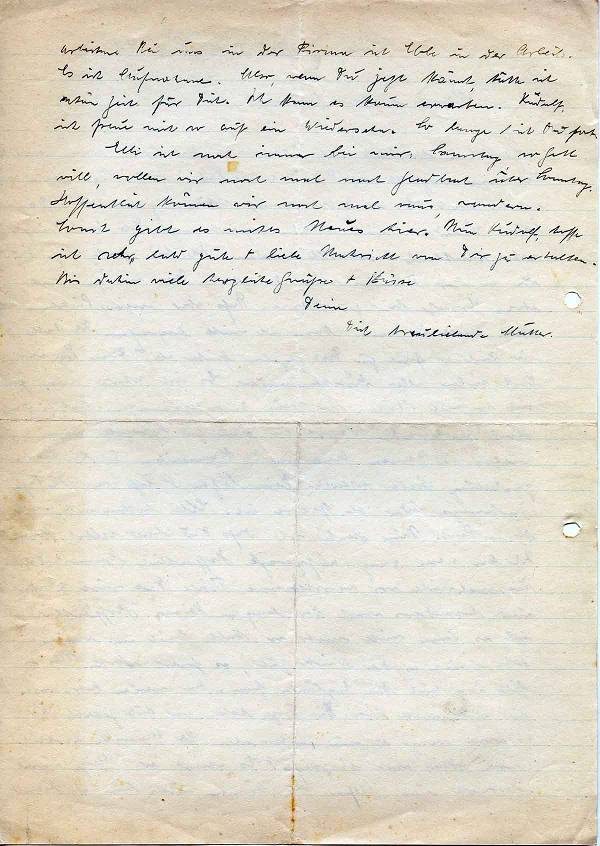 arbeiten. Bei uns in der Firma ist Ebbe in der Arbeit.
Es ist Aufnahme. Also, wenn Du jetzt kämst, hätte ich
schön Zeit für Dich. Ich kann es kaum erwarten. Rudolf,
ich freue mich so auf ein Wiedersehn. So lange bist Du fort.
Elli ist noch immer bei mir. Samstag so Gott
will, wollen wir noch mal nach über Sonntag.
Hoffentlich können wir noch mal raus, wandern.
Sonst gibt es nichts Neues hier. Nun Rudolf, hoffe
ich sehr bald gute + liebe Nachricht von Dir zu erhalten.
Bis dahin viele herzliche Grüße + Küsse
Deine
Dich treuliebende Mutter.